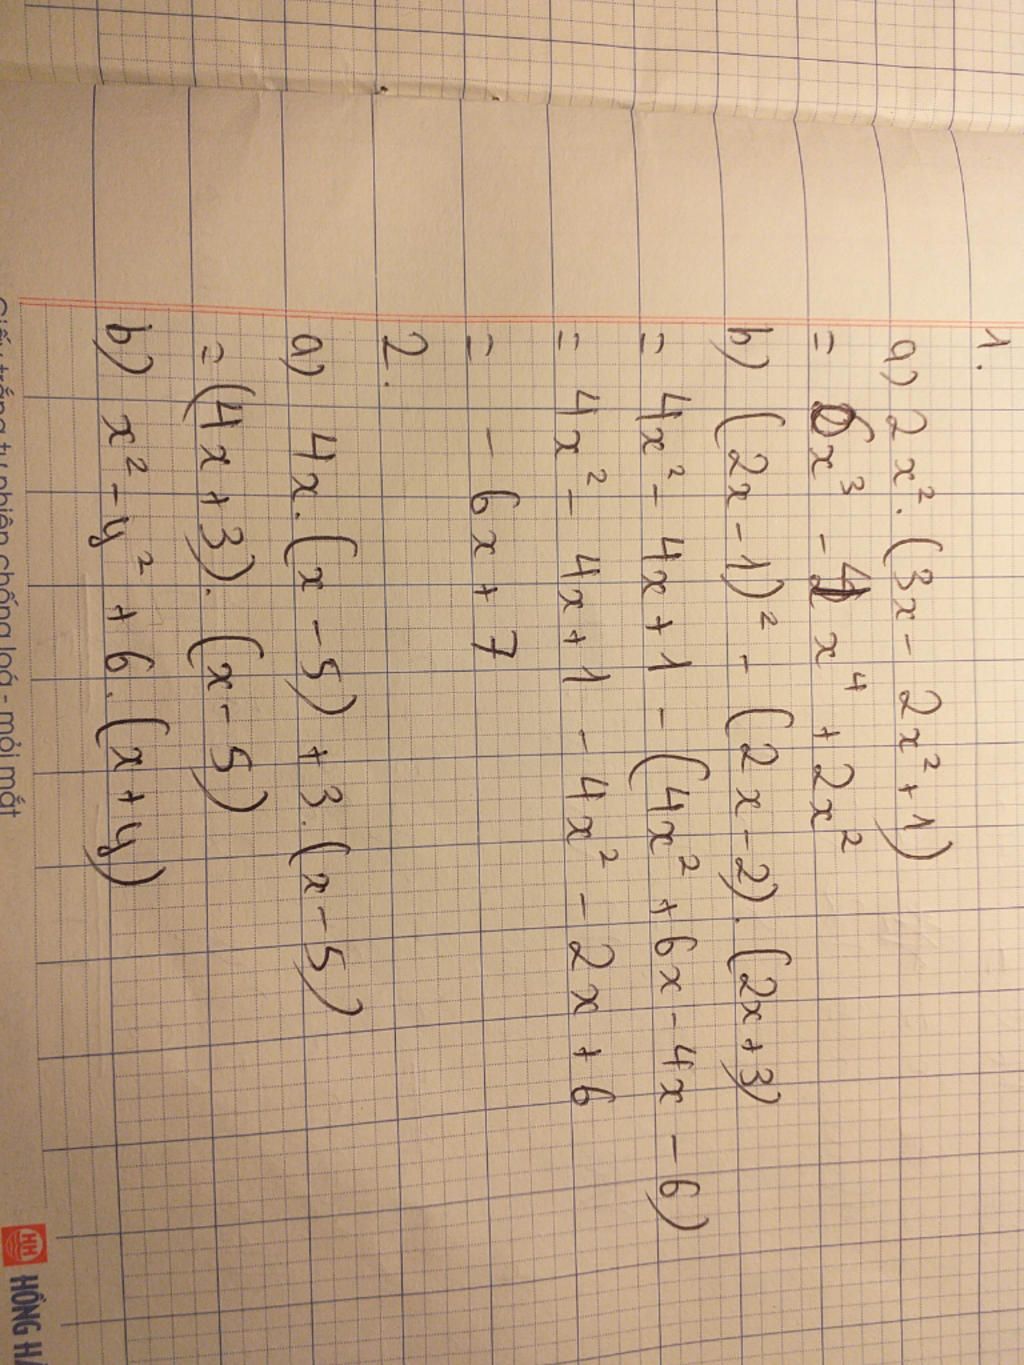 1.
a) 2x². (3x - 2x² + 1)
= 6x³ - 4x⁴ + 2x²
b) (2x - 1)² - (2x - 2). (2x + 3)
= 4x² - 4x + 1 - (4x² + 6x - 4x - 6)
= 4x² - 4x + 1 - 4x² - 2x + 6
= - 6x + 7
2.
a) 4x. (x - 5) + 3. (x - 5)
= (4x + 3). (x - 5)
b) x² - y² + 6. (x + y)
Giấy trắng tự nhiên chống loá - mỏi mắt
HH HỒNG HÀ